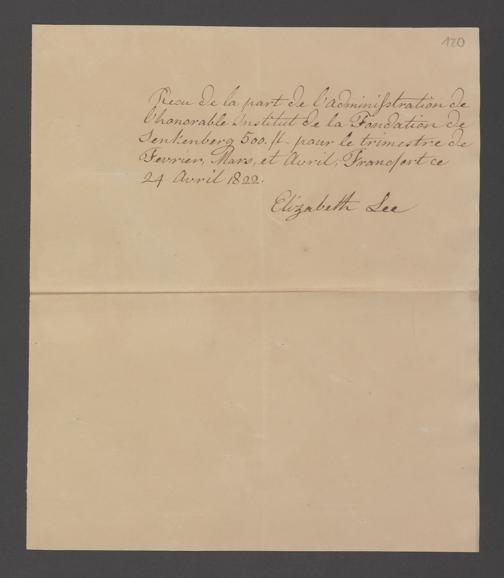 120
Recu de la part de l'administration de
l'honorable Institut de la Fondation de
Senkenberg 500. fl. pour le trimestre de
Fevrier, Mars, et Avril; Francfort ce
24 Avril 1822.
Elizabeth Lee